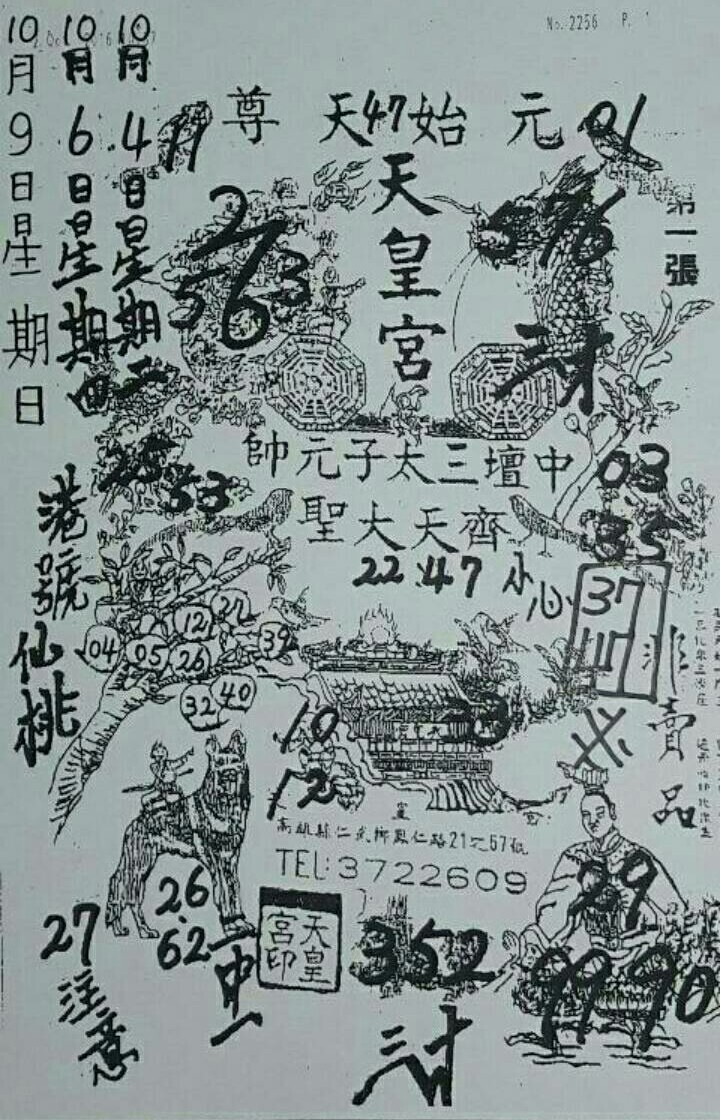 No. 2256 P. 1
10月4日星期二
10月6日星期四
10月9日星期日
元始天尊
47
01
11
天皇宮
第一張
2
7
5 6 3
576
三才
中壇三太子元帥
25 53
03
35
齊天大聖
22.47
小心
37
非賣品
港號仙桃
04 05 12 26 27 39
32 40
10
12
33
高雄縣仁武鄉鳳仁路21之57號
TEL:3722609
29
26
62
27
注意
天皇宮印
352
99 90